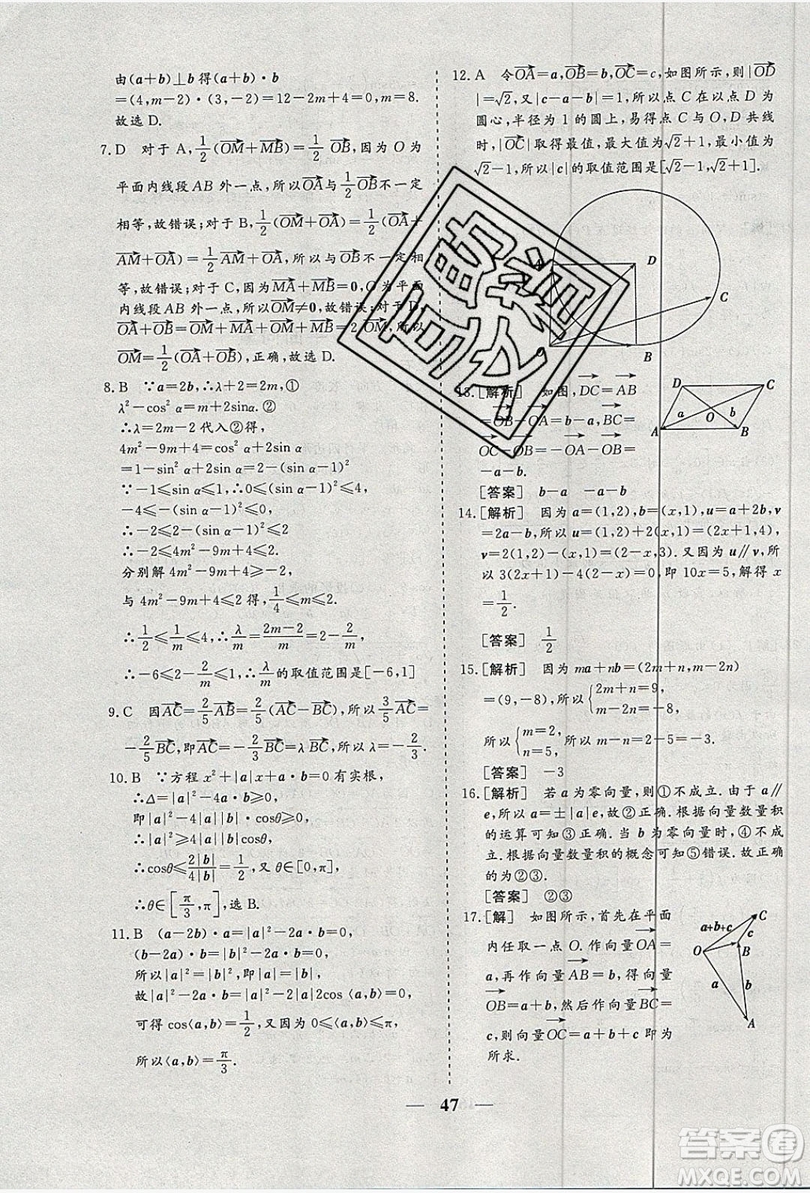 由(a+b)⊥b得(a+b)·b
=(4,m-2)·(3,-2)=12-2m+4=0,m=8.
故选D.
7.D 对于A,1/2(OM+MB)=1/2 OB,因为O为
平面内线段AB外一点,所以OA与1/2 OB不一定
相等,故错误;对于B,1/2(OM+OA)=1/2(OA+
AM+OA)=OA+1/2 AM,所以OA与1/2 OB不一定相
等,故错误;对于C,因为MA+MB=0,O为平面
内线段AB外一点,所以OM≠0,故错误;对于
D,OA+OB=OM+MA+OM+MB=2OM,所以
OM=1/2(OA+OB),正确,故选D.
8.B ∵a=2b,∴λ+2=2m,①
λ²-cos² α=m+2sinα.②
∴λ=2m-2代入②得,
4m²-9m+4=
=1-sin²α+2sin α=2-(sin α-1)²
∵-1≤sin α≤1,∴0≤(sin α-1)²≤4
-4≤-(sin α-1)²≤0
∴-2≤2-(sin α-1)²≤2
∴-2≤4m²-9m+4≤2
分别解4m²-9m+4≥-2,
与4m²-9m+4≤2得,1/4≤m≤2
∴1/2≤1/m≤4,∴λ/m=(2m-2)/m=2-2/m
∴-6≤2-2/m≤1,∴λ/m的取值范围是[-6,1]
9.C 因AC=2/5 AB=2/5(AC-BC),所以3/5 AC=
-2/5 BC,即AC=-2/3 BC=λBC,所以λ=-2/3.
10.B ∵方程x²+|a|x+a·b=0有实根,
∴Δ=|a|²-4a·b≥0,
即|a|²-4|a||b|·cosθ≥0,
∴|a|≥4|b|·cosθ,
∴cosθ≤2|b|/4|b|=1/2,又∵θ∈[0,π],
∴θ∈[π/3,π],选B.
11.B (a-2b)·a=|a|²-2a·b=0,
(b-2a)·b=|b|²-2a·b=0,
所以|a|²=|b|²,即|a|=|b|,
故|a|²-2a·b=|a|²-2|a|²cos⟨a,b⟩=0,
可得cos⟨a,b⟩=1/2,又因为0≤⟨a,b⟩≤π,
所以⟨a,b⟩=π/3.
12.A 令OA=a,OB=b,OC=c,如图所示,则|OD|
=√2,又|c-a-b|=1,所以点C在以点D为
圆心,半径为1的圆上,易得点C与O、D共线
时,|OC|取得最值,最大值为√2+1,最小值为
√2-1,所以|c|的取值范围是[√2-1,√2+1].
D
C
B
13.[解析] 如图,DC=AB
=OB-OA=b-a,BC=
OC-OB=-OA-OB=
-a-b.
D C a O b A B
[答案] b-a -a-b
14.[解析] 因为a=(1,2),b=(x,1),u=a+2b,
v=2a-b,所以u=(1,2)+2(x,1)=(2x+1,4),
v=2(1,2)-(x,1)=(2-x,3).又因为u∥v,所
以3(2x+1)-4(2-x)=0,即10x=5,解得x
=1/2.
[答案] 1/2
15.[解析] 因为ma+nb=(2m+n,m-2n)
=(9,-8),所以{2m+n=9, m-2n=-8,
所以{m=2, n=5,所以m-n=2-5=-3.
[答案] -3
16.[解析] 若a为零向量,则①不成立.由于a∥
e,所以a=±|a|e,故②正确.根据向量数量积
的运算可知③正确.当b为零向量时,④不成
立.根据向量数量积的概念可知⑤错误.故正
确的为②③.
[答案] ②③
17.[解] 如图所示,首先在平面
内任取一点O.作向量OA=
a,再作向量AB=b,则向量
OB=a+b,然后作向量BC=
c,则向量OC=a+b+c即为
所求.
a+b+c C c O B a b A
47
答案圈
MXQE.COM